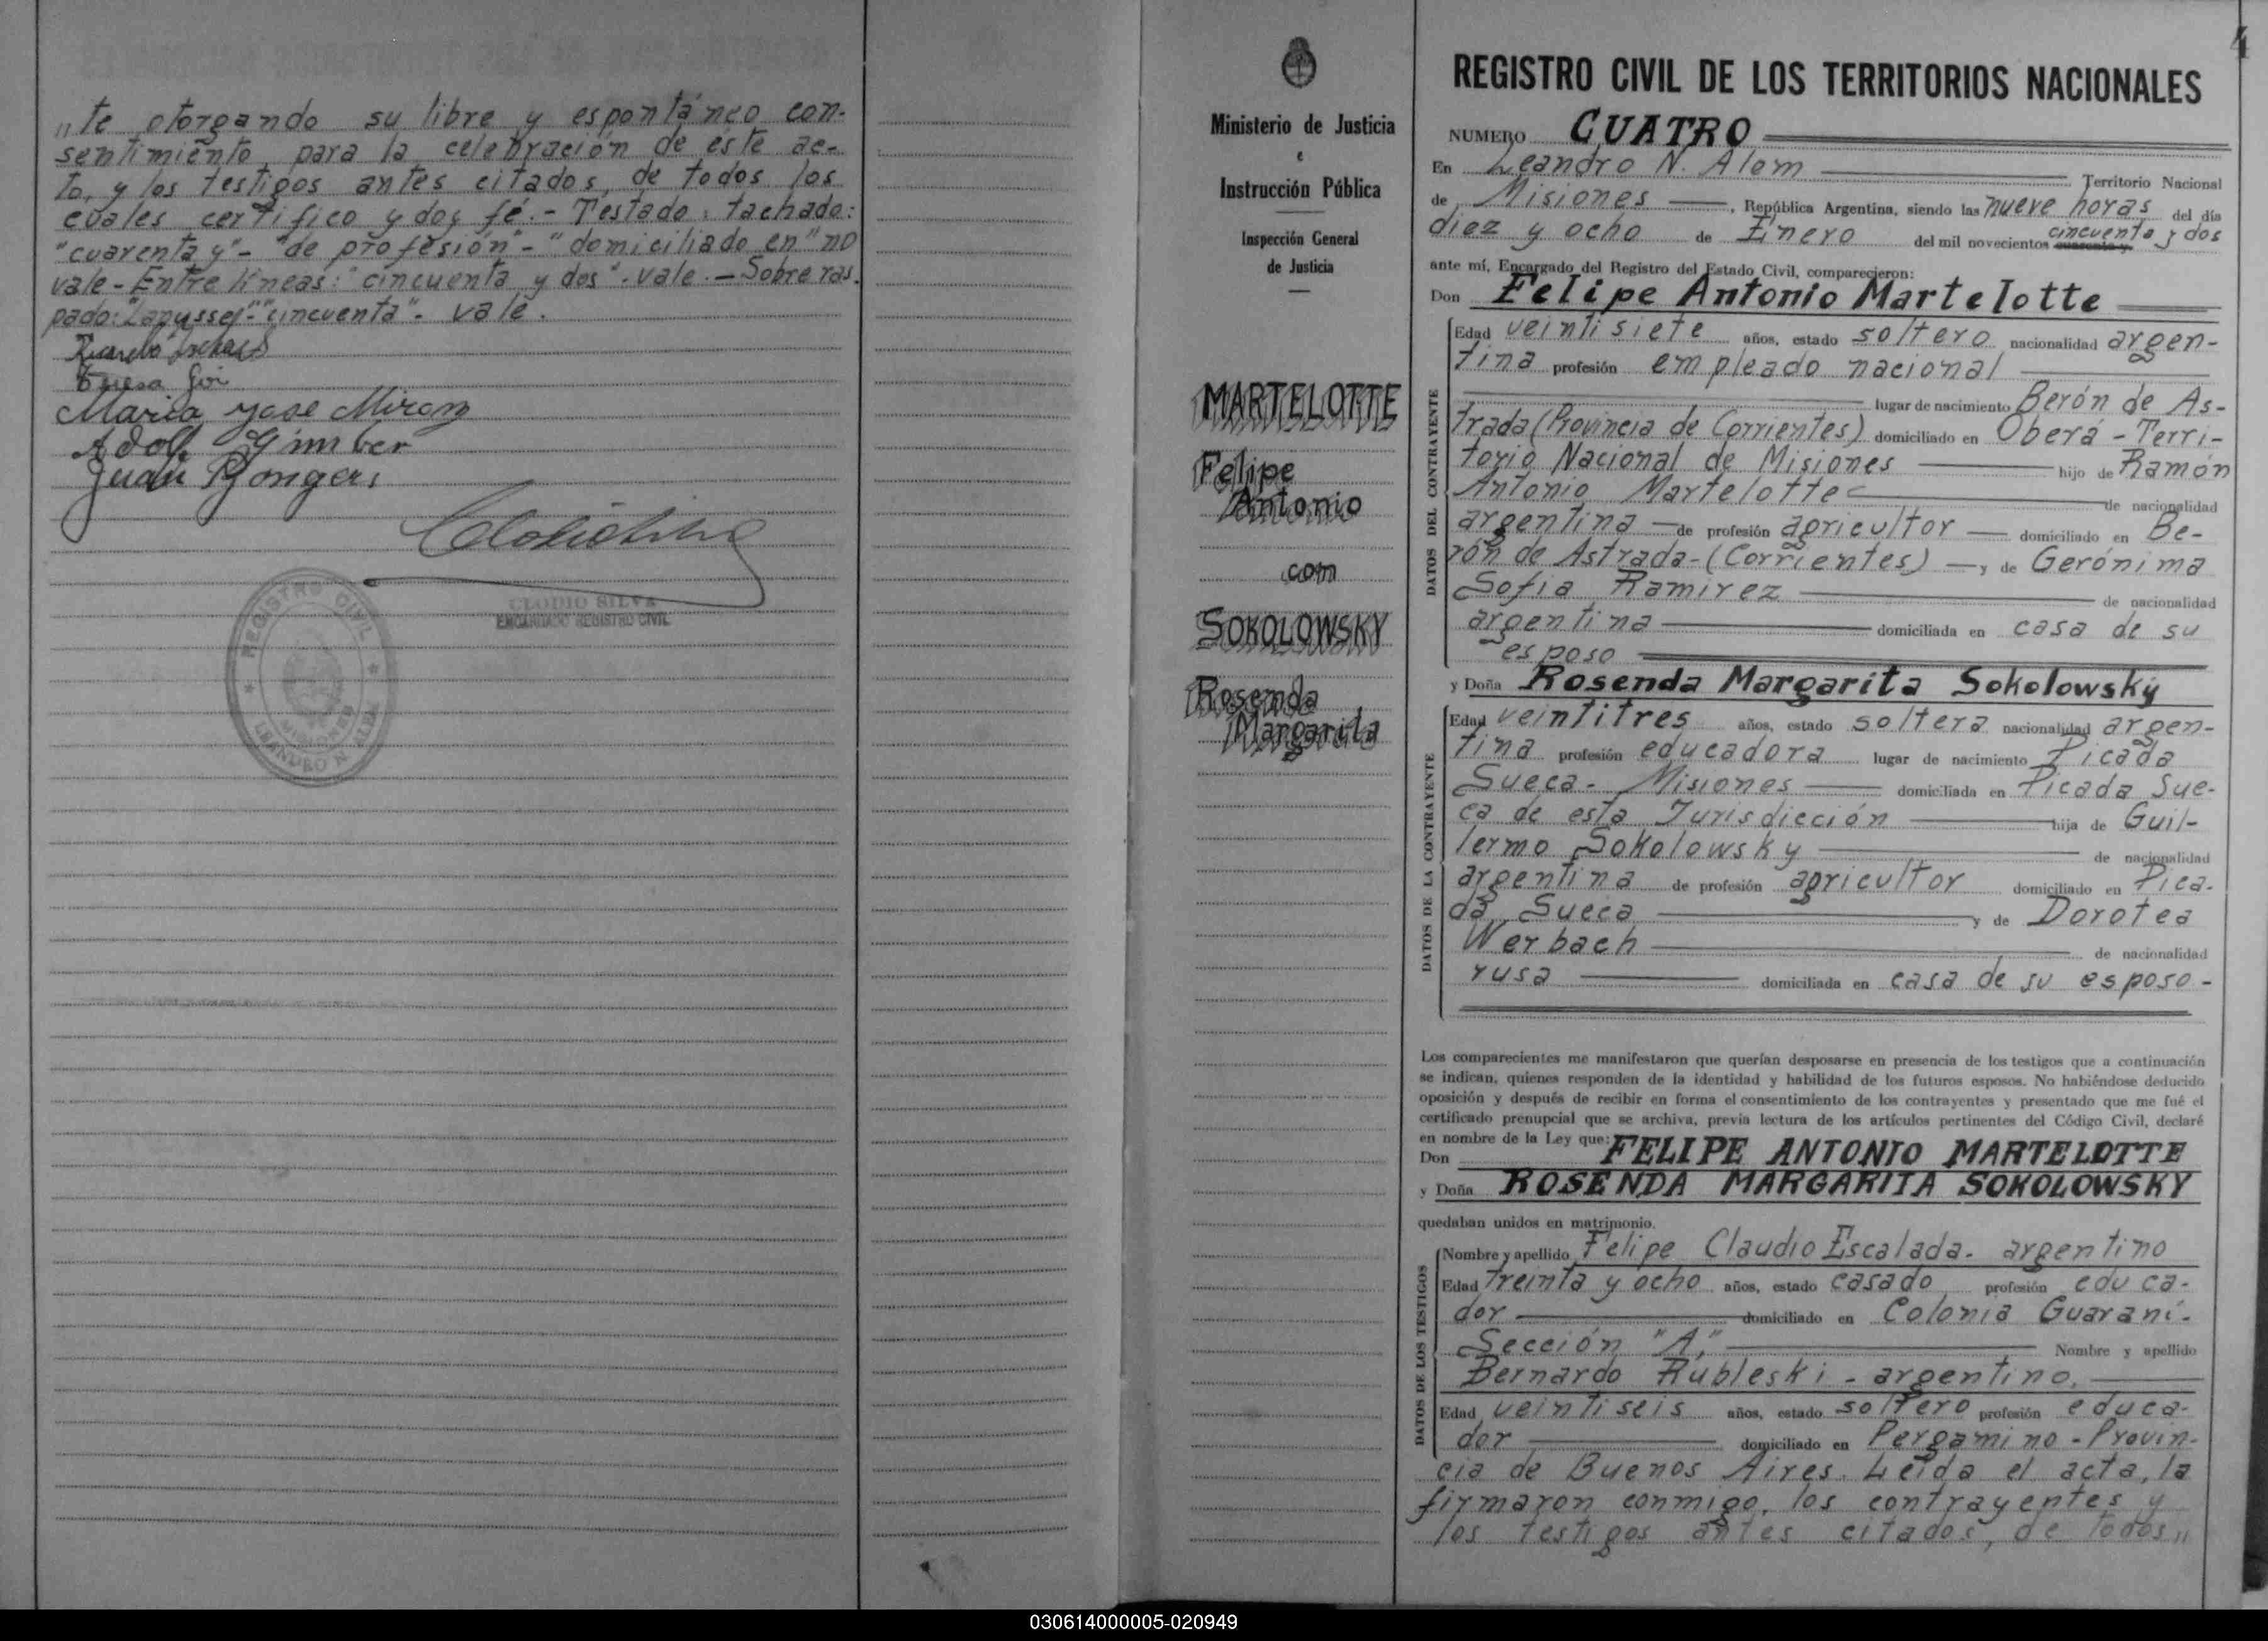 „te otorgando su libre y espontáneo con-
sentimiento, para la celebración de éste ac-
to, y los testigos antes citados, de todos los
cuales certifico y doy fé.- Testado: tachado:
"cuarenta y"- "de profesión"- "domiciliado en" no
vale- Entre líneas: "cincuenta y dos". vale.- Sobre ras.
pado: "cincuenta"- vale.
Teresa
Maria Jose
Adolf Gimber
Juan
CLODIO SILVA
ENCARGADO REGISTRO CIVIL
REGISTRO CIVIL
MISIONES
LEANDRO N. ALEM
Ministerio de Justicia
e
Instrucción Pública
Inspección General
de Justicia
MARTELOTTE
Felipe
Antonio
com
SOKOLOWSKY
Rosenda
Margarita
4
REGISTRO CIVIL DE LOS TERRITORIOS NACIONALES
NUMERO CUATRO
En Leandro N. Alem Territorio Nacional
de Misiones, República Argentina, siendo las nueve horas del día
diez y ocho de Enero del mil novecientos cuarenta y cincuenta y dos
ante mí, Encargado del Registro del Estado Civil, comparecieron:
Don Felipe Antonio Martelotte
DATOS DEL CONTRAYENTE
Edad veintisiete años, estado soltero nacionalidad argen-
tina profesión empleado nacional
lugar de nacimiento Berón de As-
trada (Provincia de Corrientes) domiciliado en Oberá - Terri-
torio Nacional de Misiones hijo de Ramón
Antonio Martelotte de nacionalidad
argentina de profesión agricultor domiciliado en Be-
rón de Astrada-(Corrientes) y de Gerónima
Sofia Ramirez de nacionalidad
argentina domiciliada en casa de su
esposo
y Doña Rosenda Margarita Sokolowsky
DATOS DE LA CONTRAYENTE
Edad veintitres años, estado soltera nacionalidad argen-
tina profesión educadora lugar de nacimiento Picada
Sueca- Misiones domiciliada en Picada Sue-
ca de esta Jurisdicción hija de Guil-
lermo Sokolowsky de nacionalidad
argentina de profesión agricultor domiciliado en Pica-
da Sueca y de Dorotea
Werbach de nacionalidad
rusa domiciliada en casa de su esposo-
Los comparecientes me manifestaron que querían desposarse en presencia de los testigos que a continuación
se indican, quienes responden de la identidad y habilidad de los futuros esposos. No habiéndose deducido
oposición y después de recibir en forma el consentimiento de los contrayentes y presentado que me fué el
certificado prenupcial que se archiva, previa lectura de los artículos pertinentes del Código Civil, declaré
en nombre de la Ley que:
Don FELIPE ANTONIO MARTELOTTE
y Doña ROSENDA MARGARITA SOKOLOWSKY
quedaban unidos en matrimonio.
DATOS DE LOS TESTIGOS
Nombre y apellido Felipe Claudio Escalada- argentino
Edad treinta y ocho años, estado casado profesión educa-
dor domiciliado en Colonia Guaraní-
Sección "A," Nombre y apellido
Bernardo Rubleski - argentino.
Edad veintiseis años, estado soltero profesión educa-
dor domiciliado en Pergamino - Provin-
cia de Buenos Aires. Leida el acta, la
firmaron conmigo, los contrayentes y
los testigos antes citados, de todos„
030614000005-020949